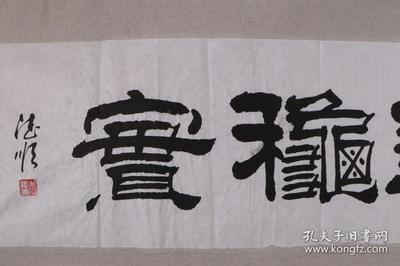 龝實
德順
孔夫子旧书网
www.kongfz.com